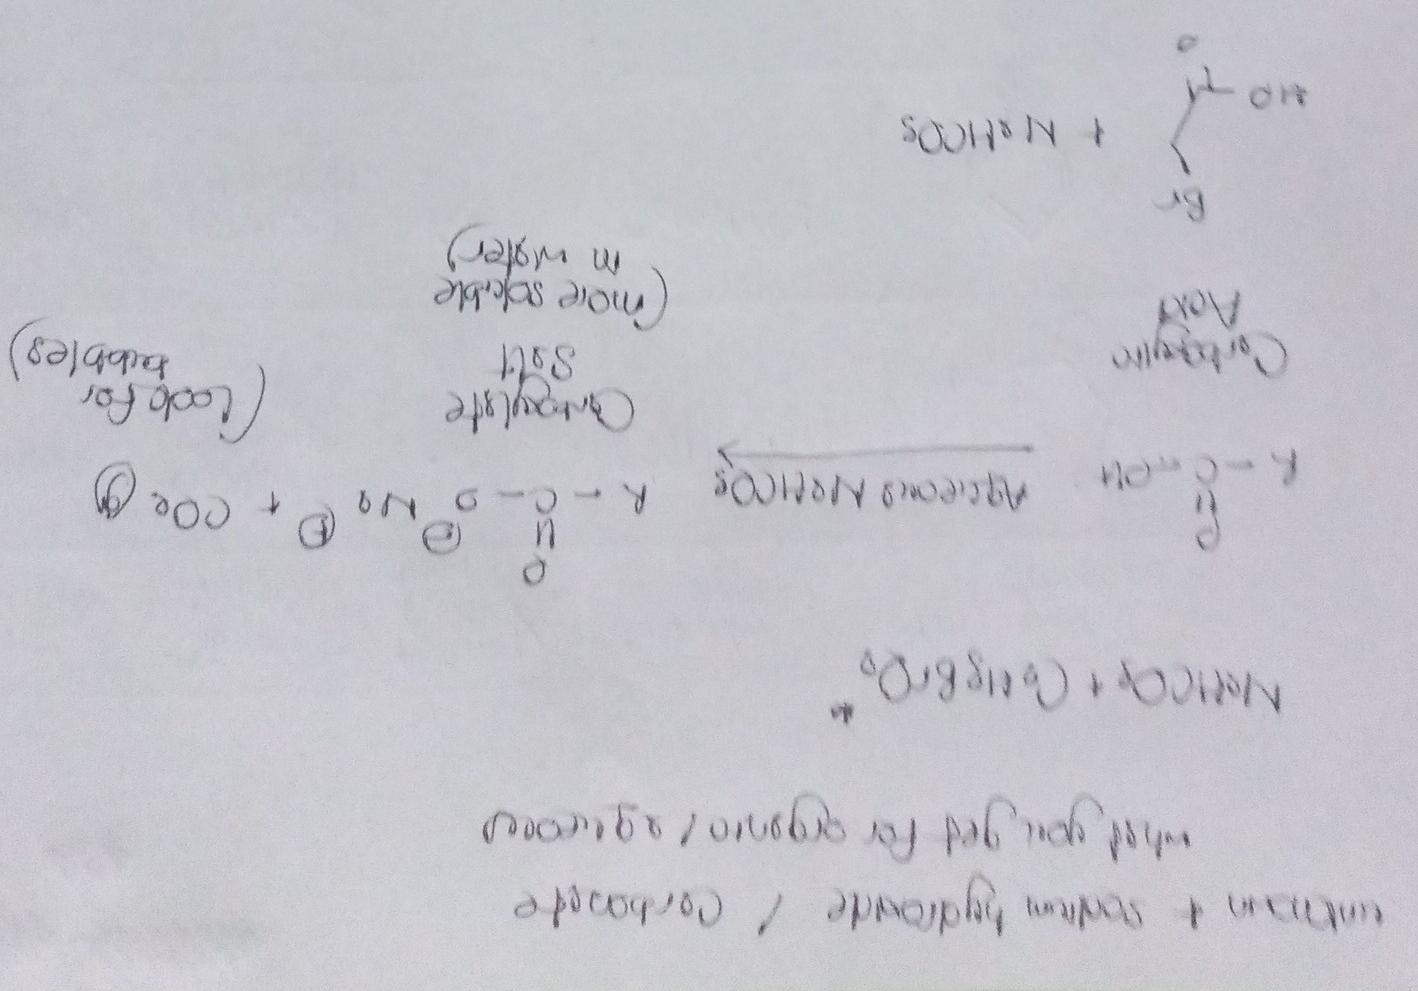 unknown + sodium hydroxide / Carbonate
what you get for organic / aqueous
NaHCO3 + C3H5BrO2 *
O
R - C - OH Aqueous NaHCO3 R - C - O ⊖ Na ⊕ + CO2 (g)
O
Carboxylic
Acid
Carboxylate
Salt
(more soluble
in water)
(look for
bubbles)
Br
+ NaHCO3
HO
O